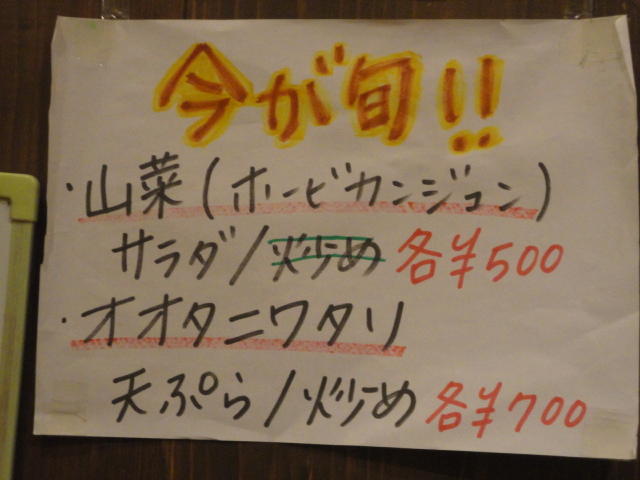 今が旬!!
・山菜(ホービカンジュン)
サラダ/炒め 各¥500
・オオタニワタリ
天ぷら/炒め 各¥700